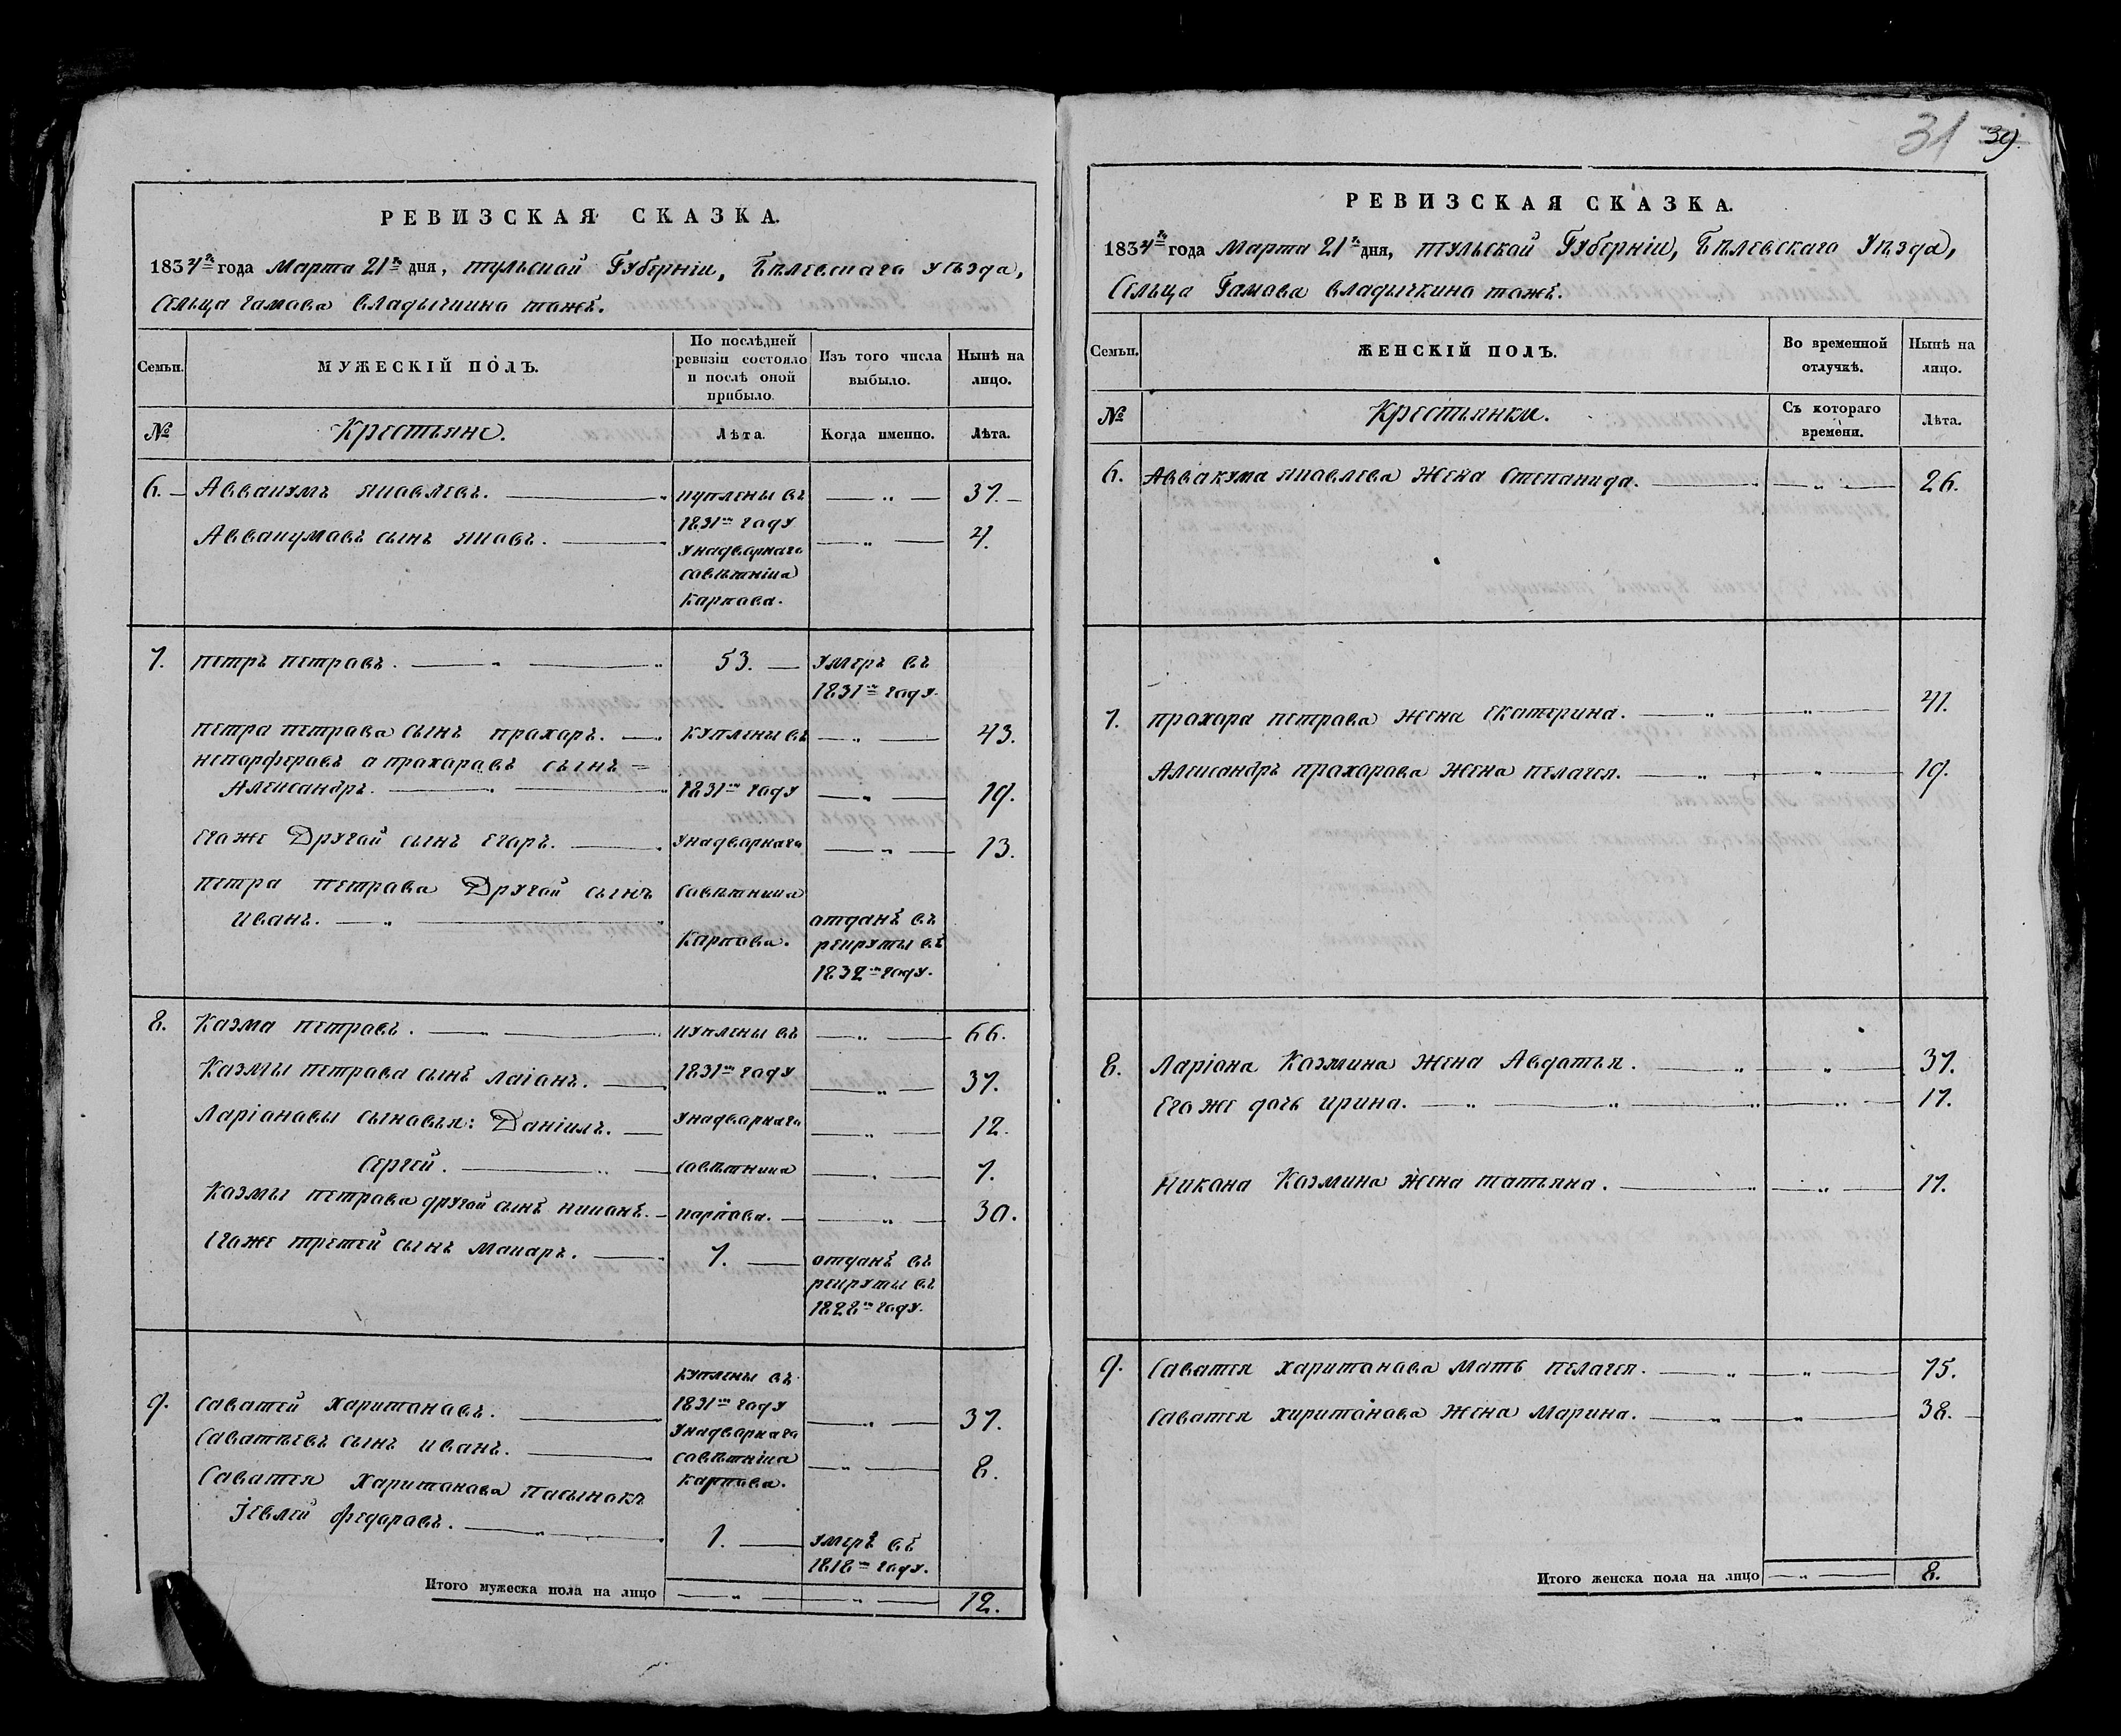 31 39.
РЕВИЗСКАЯ СКАЗКА.
1834го года Марта 21го дня, тульской Губерніи, Бѣлевскаго уѣзда,
Сельца гамова владычкино тожъ.
Семьи. МУЖЕСКІЙ ПОЛЪ. По послѣдней ревизіи состояло и послѣ оной прибыло. Изъ того числа выбыло. Нынѣ на лицо.
№ Крестьяне. Лѣта. Когда именно. Лѣта.
6. Аввакумъ яковлевъ. куплены въ 37.
1831м году
Аввакумовъ сынъ яковъ. 4.
Унадворнаго
совѣтника
Карпова.
7. петръ петровъ. 53. умеръ въ
1831м году.
петра петрова сынъ прохоръ. куплены въ 43.
непорферовъ а прохоровъ сынъ
Александръ. 1831м году 19.
Егоже Другой сынъ Егоръ. Унадворнаго 13.
петра петрова Другой сынъ совѣтника
иванъ. отданъ въ
Карпова. рекруты въ
1832м году.
8. Козма петровъ. куплены въ 66.
Козмы петрова сынъ лаіонъ. 1831м году 37.
Ларіоновы сыновья: Даніилъ. Унадворнаго 12.
Сергей. совѣтника 7.
Козмы петрова другой сынъ никонъ. карпова. 30.
Егоже третей сынъ макаръ. 7. отданъ въ
рекруты въ
1828м году.
куплены въ
9. саватей харитоновъ. 1831м году 37.
Унадворнаго
Саватѣевъ сынъ иванъ. совѣтника 8.
Саватея Харитонова пасынокъ Карпова.
Іевлей федоровъ. 1. умеръ въ
1818м году.
Итого мужеска пола на лицо 12.
РЕВИЗСКАЯ СКАЗКА.
1834го года Марта 21го дня, тульской Губерніи, Бѣлевскаго Уѣзда,
Сельца Гамова владычкино тожъ.
Семьи. ЖЕНСКІЙ ПОЛЪ. Во временной отлучкѣ. Нынѣ на лицо.
№ Крестьянки. Съ котораго времени. Лѣта.
6. Аввакума яковлева Жена Степанида. 26.
7. прохора петрова жена екатерина. 41.
Александръ прохорова жена пелагея. 19.
8. Ларіона Козмина жена Авдотья. 37.
Его же дочь ирина. 17.
Никона Козмина жена татьяна. 17.
9. Саватея харитонова мать пелагея. 75.
Саватея хиритонова жена Марина. 38.
Итого женска пола на лицо 8.